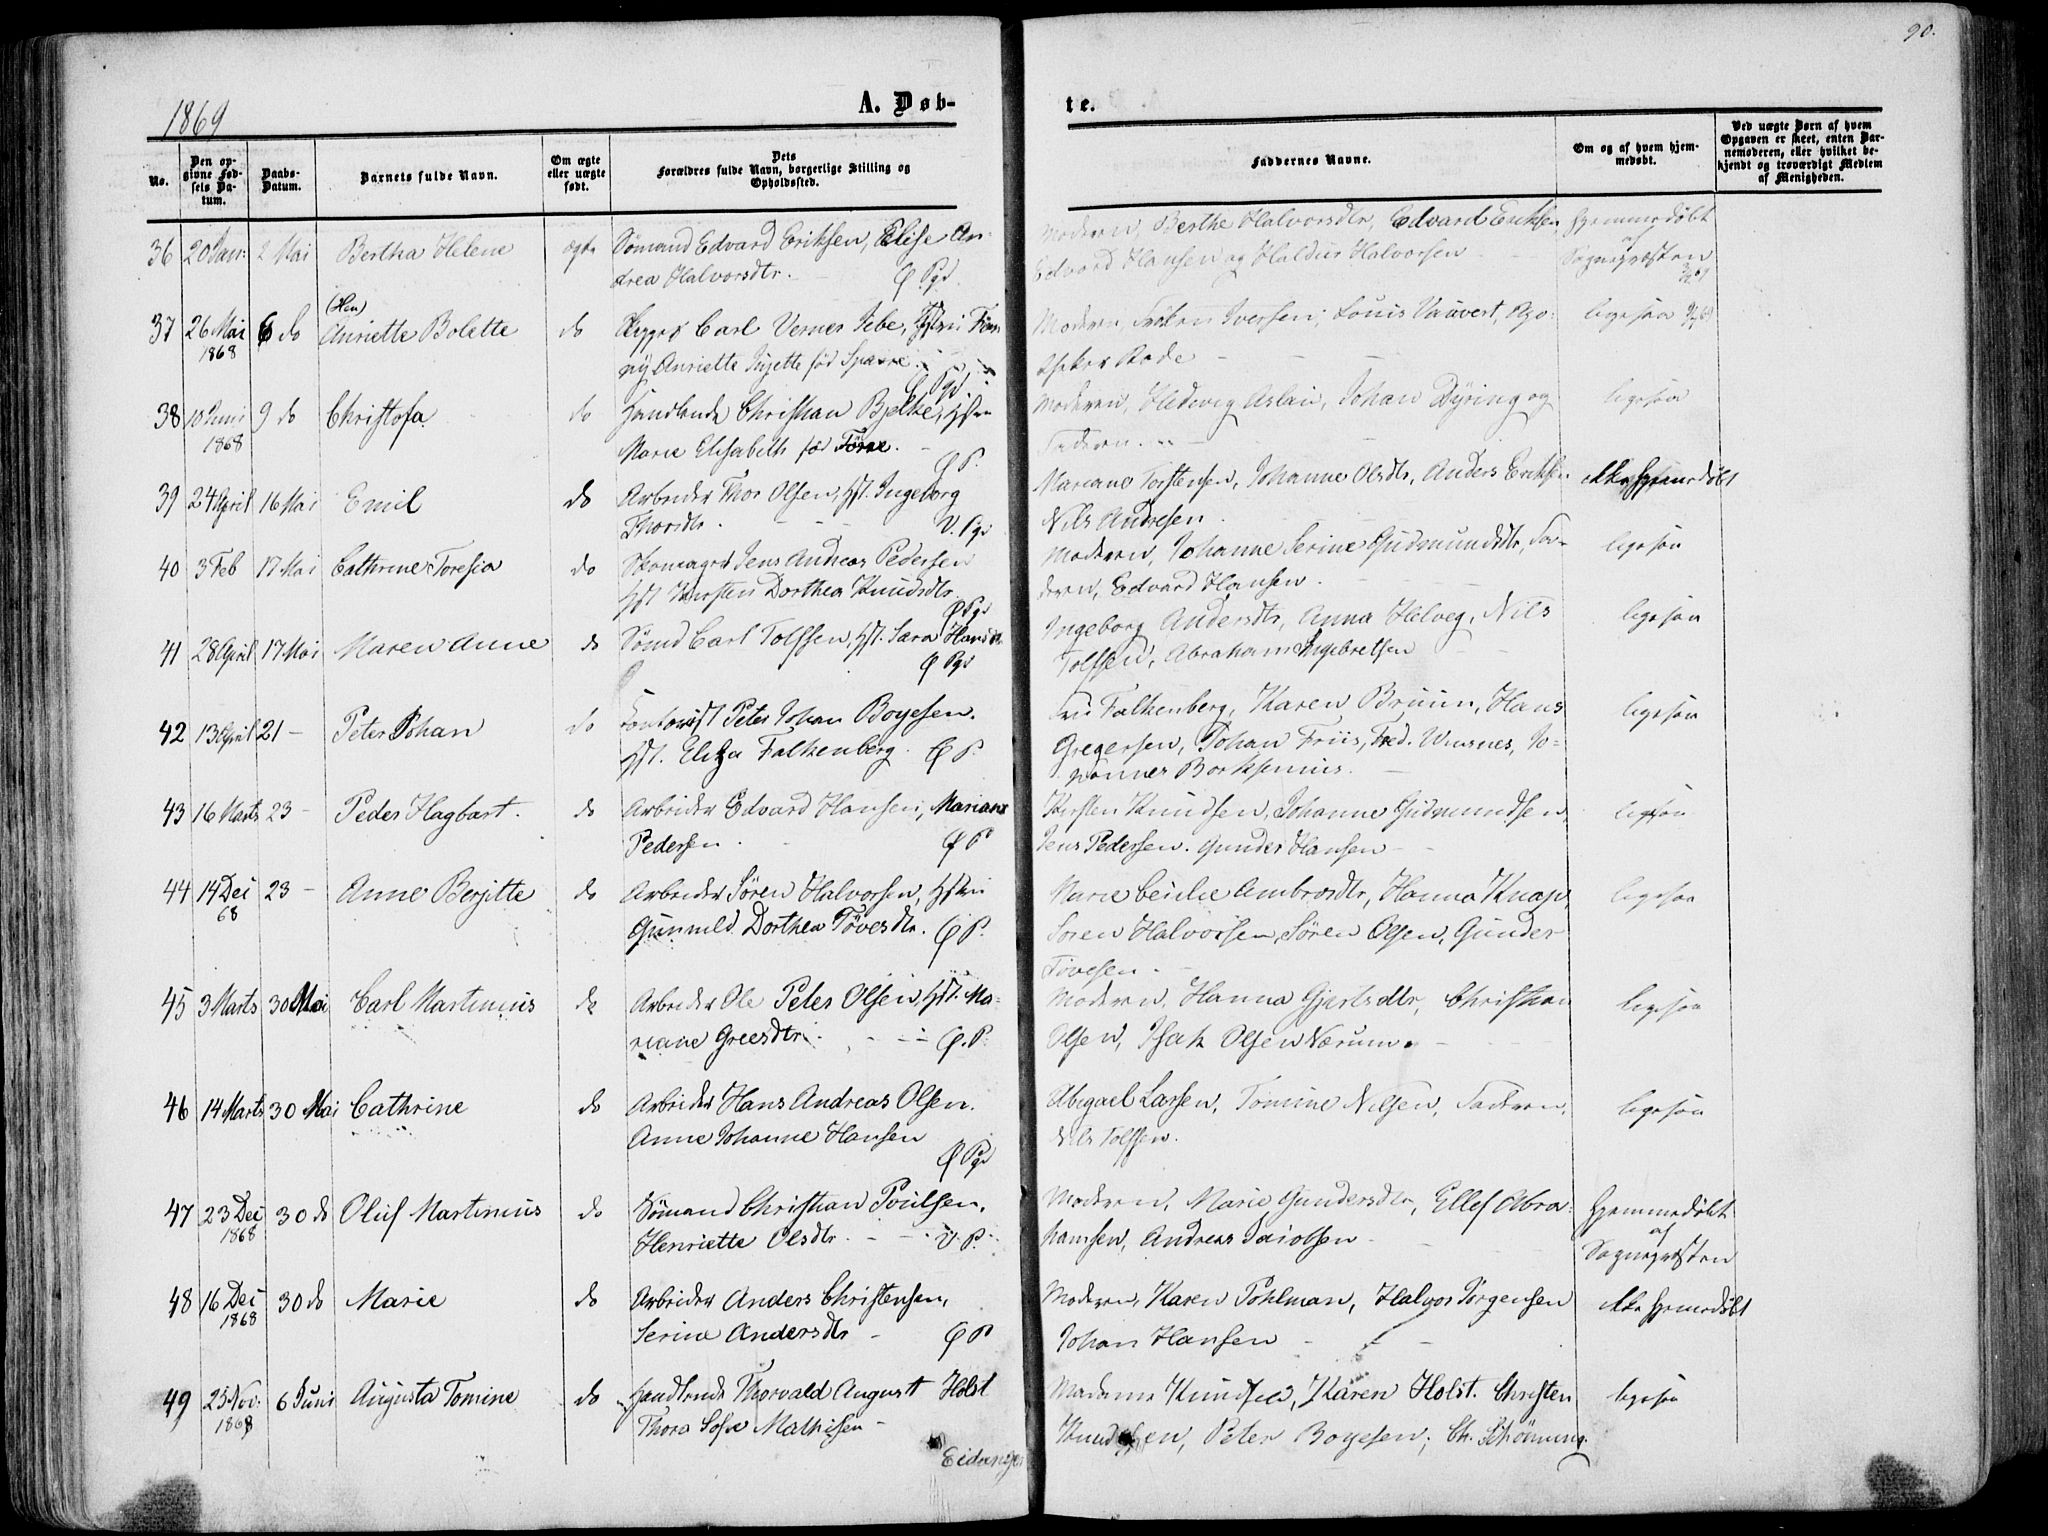 90.
1869
A. Døb-
te.
No.
Den op-
givne Fød-
sels Da-
tum.
Daabs-
Datum.
Barnets fulde Navn.
Om ægte
eller uægte
født.
Dets
Forældres fulde Navn, borgerlige Stilling og
Opholdssted.
Faddernes Navne.
Om og af hvem hjem-
medøbt.
Ved uægte Børn af hvem
Opgaven er skeet, enten Bar-
nemoderen, eller hvilket be-
kjendt og troværdigt Medlem
af Menigheden.
36 20 Jan: 2 Mai Bertha Helene ægte Sømand Edvard Eriksen, Elise An-
drea Halvorsdtr. Ø Pgr.
Moderen, Berthe Halvorsdtr, Edvard Eriksen
Edvard Hansen og Haldur Halvorsen
Hjemmedøbt
af
Sognepræsten
37 26 Mai 6 do (Hen)
1868 Anriette Bolette do Carl Verner Jebe,
Anriette født Sparre.
Moderen, Frøken Iversen, Louis Vauvert, Apo-
theker Rode
ligesaa
38 10 Juni 9 do Christofa do Handlende Christian Bjelke, Hstr
1868 Marie Elisabeth fød Ø P.
Moderen, Hedevig Aslan, Johan Dyring og
Faderen.
ligesaa
39 24 April 16 Mai Emil do Arbeider Thor Olsen, Hst. Ingeborg
Thorsdtr. V. Pgr
Mariane Torstensen, Johanne Olsdtr, Anders Eriksen
Nils Andresen
ikke hjemmedøbt
40 3 Feb 17 Mai Cathrine Toresia do Skomager Jens Andreas Pedersen
Hst Kirsten Dorthea Knudsdtr. Ø Pgr
Moderen, Johanne Serine Gudmundsdtr, Fa-
deren, Edvard Hansen.
ligesaa
41 28 April 17 Mai Maren Anne do Sømd Carl Tolfsen, Hst. Sara Hansdtr
Ø Pgr
Ingeborg Andersdtr, Anna Helveg, Nils
Tolfsen, Abraham Ingebretsen
ligesaa
42 13 April 21 - Peter Johan do Contorist Peter Johan Boyesen.
Hst. Eliza Falkenberg. Ø P.
Fru Falkenberg, Karen Bruun, Hans
Gregersen, Johan Friis, Fred. Wusnes, Jo-
hannes Borksenius.
ligesaa
43 16 Marts 23 - Peder Hagbart. do Arbeider Edvard Hansen, Mariane
Pedersen. Ø P
Kirsten Knudsen, Johanne Gudmundsen
Jens Pedersen. Gunder Hansen
ligesaa
44 14 Dei 23 - Anne Berjitte do Arbeider Søren Halvorsen, Hstru
68 Gunnild Dorthea Tøvesdtr. Ø P.
Marie Cecilie Ambrosdtr, Hanna Knap,
Søren Halvorsen, Søren Olsen, Gunder
Tøvesen.
ligesaa
45 3 Marts 30 Mai Carl Martinius do Arbeider Ole Peter Olsen, Hst. Ma-
riane Greesdtr. Ø. P.
Moderen, Hanna Gjertsdtr, Christian
Olsen, Isak Olsen Nærum.
ligesaa
46 14 Marts 30 Mai Cathrine do Arbeider Hans Andreas Olsen.
Anne Johanne Hansen
Ø Pgr
Abigael Larsen, Tomine Nilsen, Faderen,
Nils Tolfsen.
ligesaa
47 23 Dei 30 do Oluf Martinius do Sømand Christian Poulsen.
1868 Henriette Olsdtr. V. P.
Moderen, Marie Gundersdtr, Ellef Abra-
hamsen, Andreas Jacobsen
Hjemmedøbt
af
Sognepræsten
48 16 Dei 30 do Marie do Arbeider Anders Christensen,
1868 Serine Andersdtr Ø P
Moderen, Karen Pohlman, Halvor Jørgensen
Johan Hansen
ikke hjemmedøbt
49 25 Nov. 6 Juni Augusta Tomine do Handlende Thorvald August Holst
1868 Thora Sofie Mathisen
Eidanger
Madame Knudsen, Karen Holst. Christen
Knudsen, Peter Boyesen, Ch. Schønning.
ligesaa